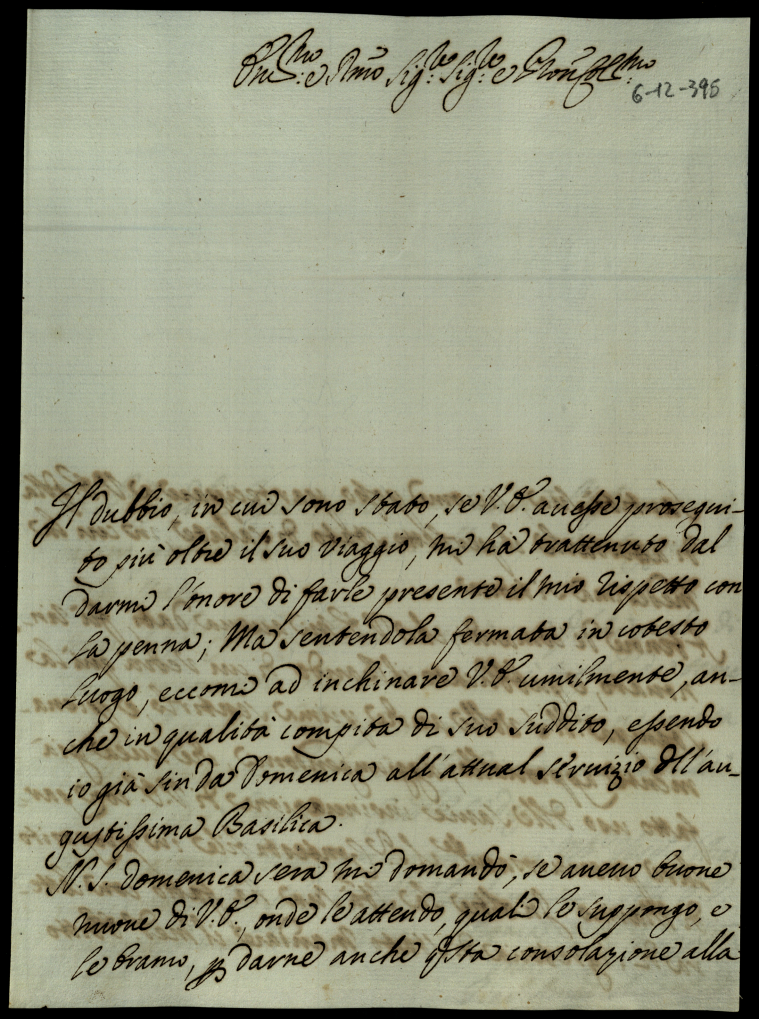 Em.mo e Rmo Sig.re Sig.re e Pron Col.mo
6-12-395
Il dubbio, in cui sono stato, se V.E. avesse prosegui-
to più oltre il suo viaggio, mi hà trattenuto dal
darmi l'onore di farle presente il mio rispetto con
la penna; Ma sentendola fermata in cotesto
luogo, eccomi ad inchinare V.E. umilmente, an-
che in qualità compita di suo suddito, essendo
io già sin da Domenica all'attual servizio dell'au-
gustissima Basilica.
N. S. Domenica sera mi domandò, se avevo buone
nuove di V.E., onde le attendo, quali le suppongo, e
le bramo, p darne anche qsta consolazione alla